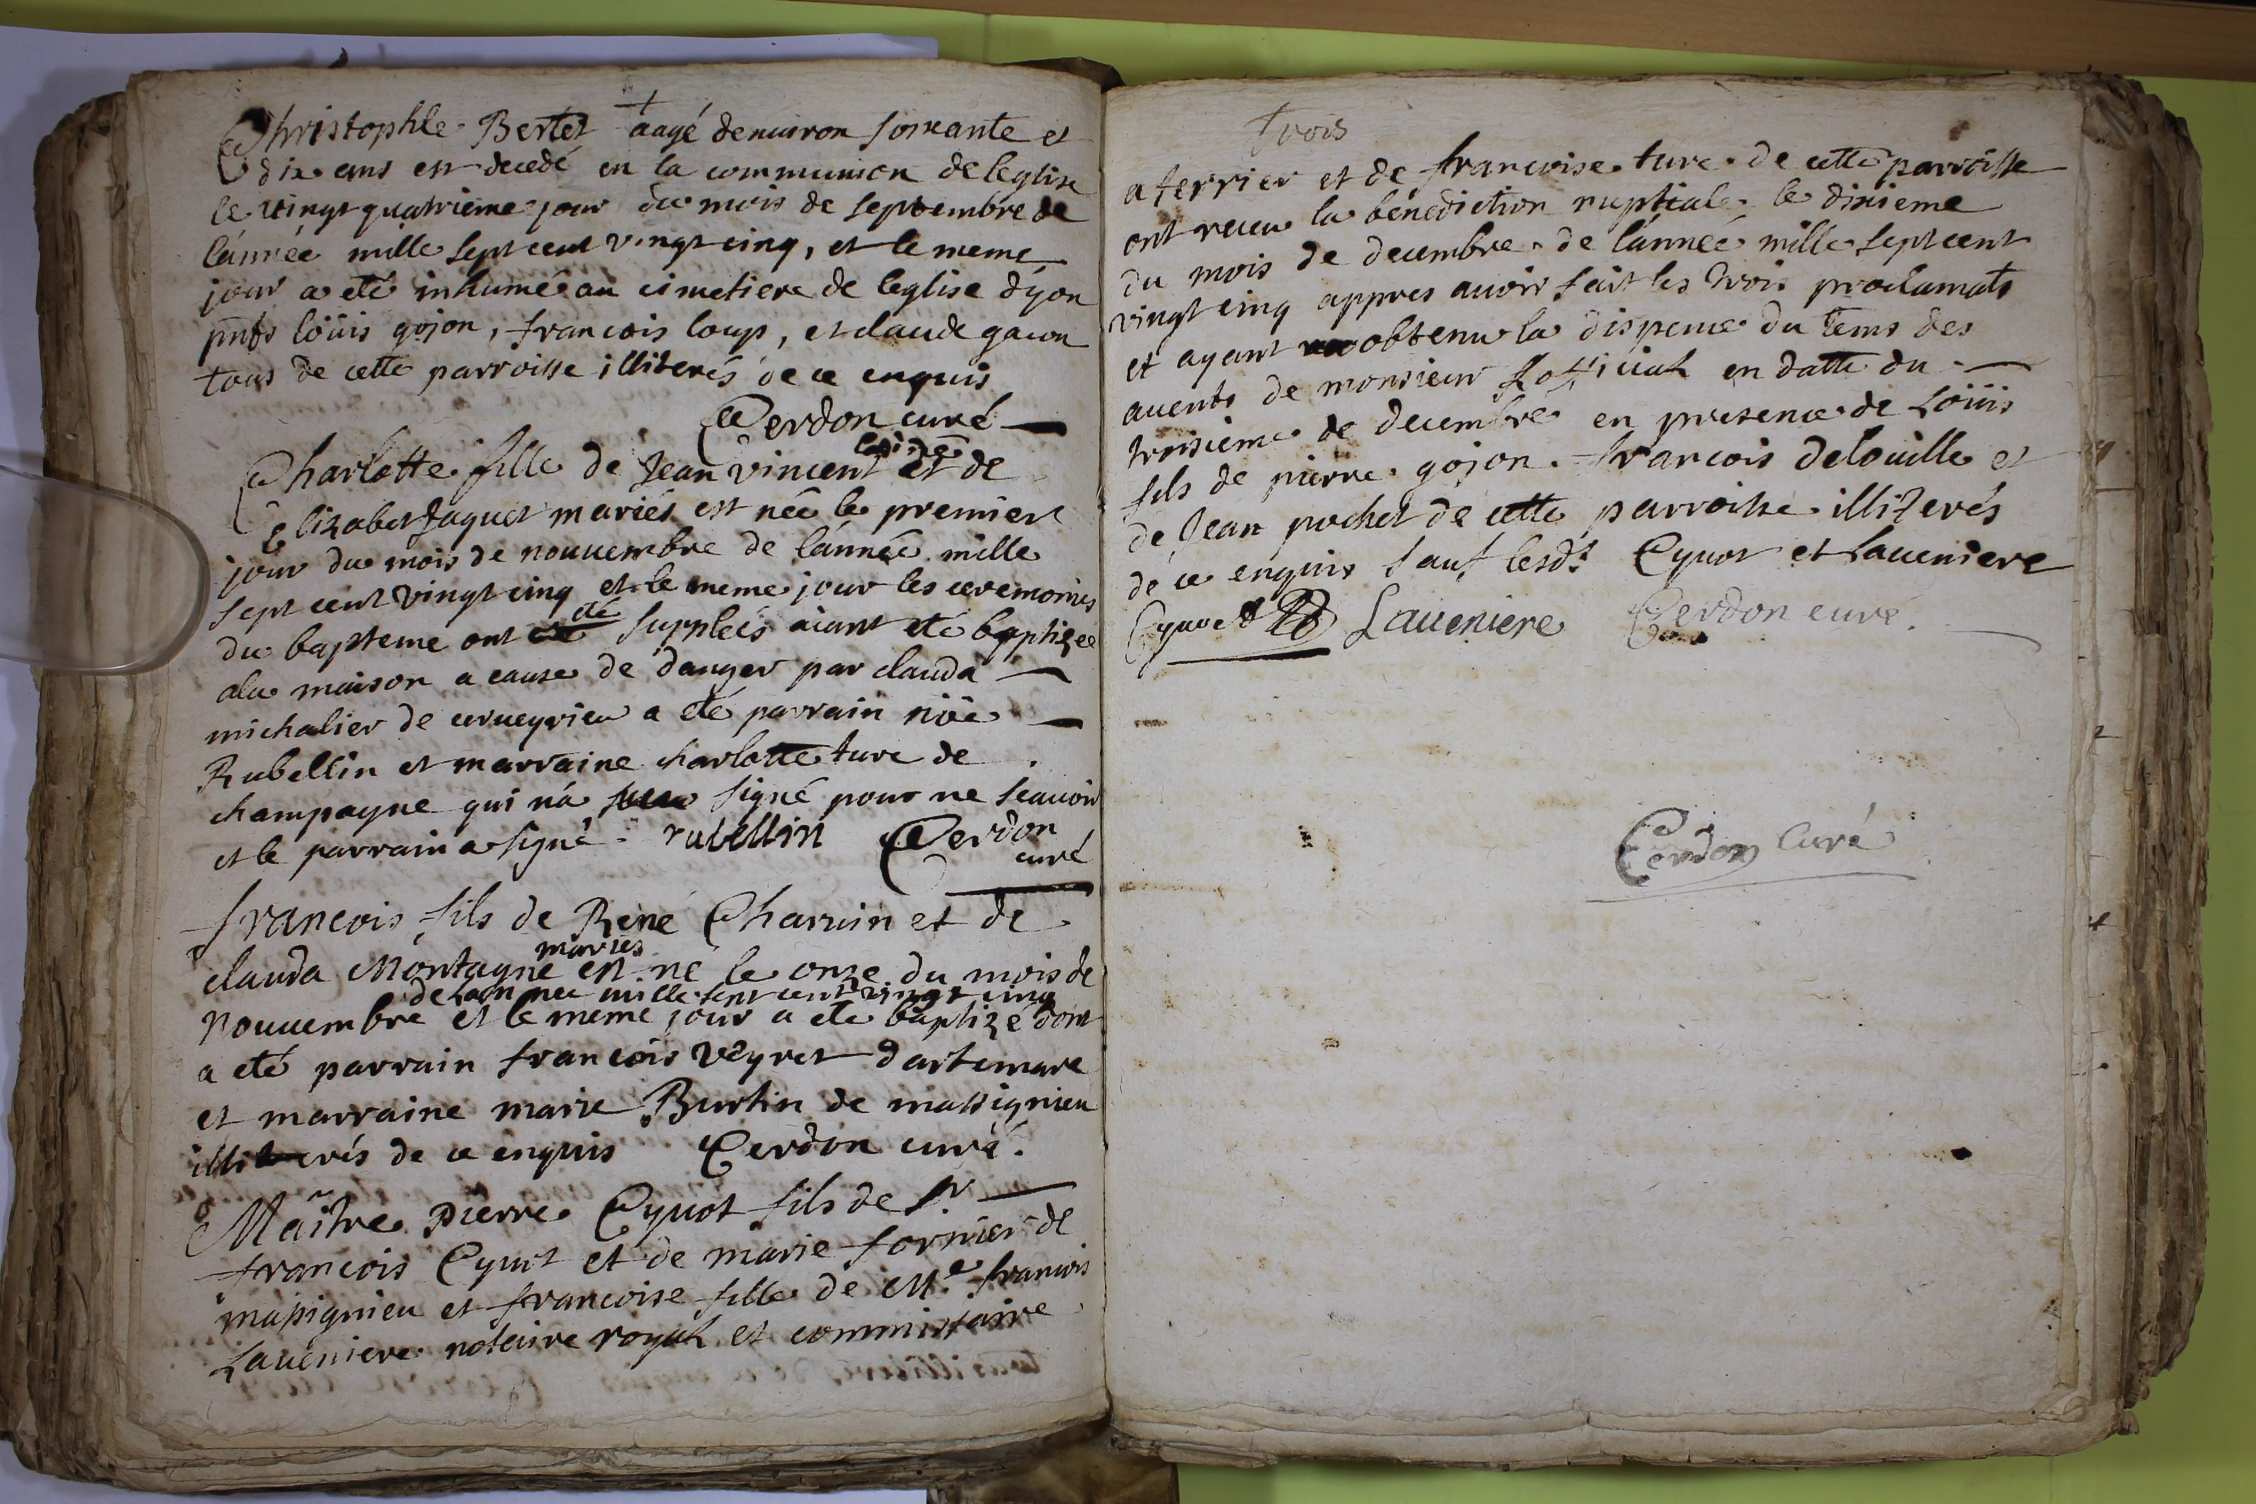 Christophle Bertet aagé denuiron soixante et
dix ans est decedé en la communion de leglise
le vingt quatrieme jour du mois de septembre de
l'année mille sept cent vingt cinq, et le meme
jour a eté inhumé au cimetiere de leglise dyon
pnts loüis gojon, francois loup, et claude gacon
tous de cette parroisse illiterés de ce enquis
Cerdon curé
Charlotte fille de Jean vincent et de
Elizabet Jaquet mariés est née le premier
jour du mois de nouuembre de l'année mille
sept cent vingt cinq et le meme jour les ceremonies
du bapteme ont eté suppleés aiant eté baptizée
a la maison a cause de danger par clauda
michalier de cerueyrieu a eté parrain nöe
Rubellin et marraine charlotte ture de
champagne qui n'a signé pour ne scauoir
et le parrain a signé. rubellin Cerdon
curé
francois fils de René Charuin et de
mariés
clauda Montagne est né le onze du mois de
de lannee mille sept cent vingt cinq
nouuembre et le meme jour a eté baptizé dont
a eté parrain francois veyret dartemare
et marraine marie Burtin de massignieu
illiterés de ce enquis Cerdon curé.
Maitre pierre Cyuot fils de Sr
francois Cyuot et de marie fornier de
massignieu et francoise fille de Me francois
Laueniere notaire royal et commissaire
trois
a terrier et de francoise ture de cette parroisse
ont receu la benediction nuptiale le dixieme
du mois de decembre de l'année mille sept cent
vingt cinq appres auoir fait les trois proclamats
et ayant obtenu la dispense du tems des
auents de monsieur Lofficial en datte du
troisieme de decembre en presence de Loüis
fils de pierre gojon francois delouille et
de Jean pochet de cette parroisse illiterés
de ce enquis sauf lesdt Cyuot et Laueniere
Cyuot Laueniere Cerdon curé.
Cerdon Curé